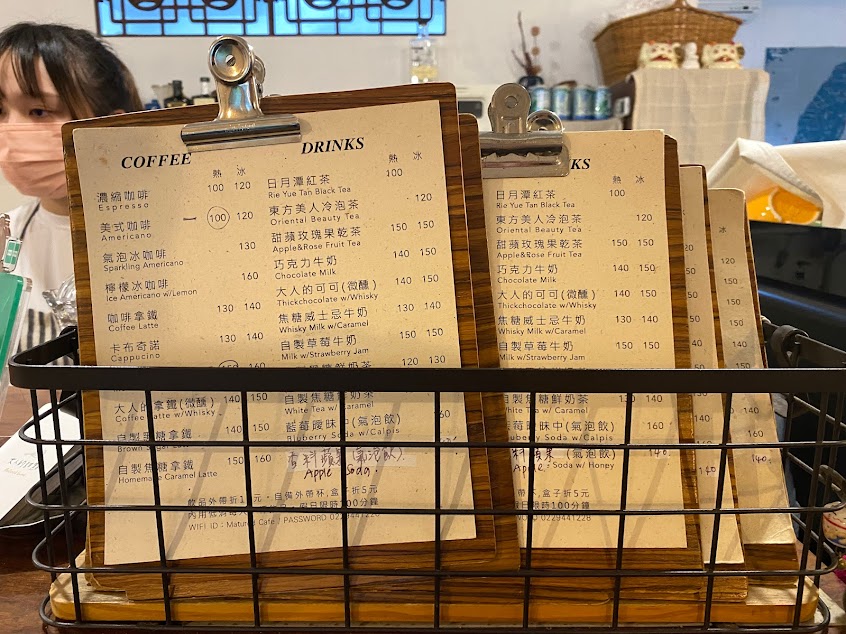 COFFEE
熱 冰
濃縮咖啡 100 120
Espresso
美式咖啡 — 100 120
Americano
氣泡冰咖啡 130
Sparkling Americano
檸檬冰咖啡 160
Ice Americano w/Lemon
咖啡拿鐵 130 140
Coffee Latte
卡布奇諾 130 140
Cappucino
大人的拿鐵(微醺) 140 150
Coffee Latte w/Whisky
自製黑糖拿鐵 140 150
Brown Sugar Latte
自製焦糖拿鐵 150 160
Homemade Caramel Latte
DRINKS
熱 冰
日月潭紅茶 100
Rie Yue Tan Black Tea
東方美人冷泡茶 120
Oriental Beauty Tea
甜蘋玫瑰果乾茶 150 150
Apple&Rose Fruit Tea
巧克力牛奶 140 150
Chocolate Milk
大人的可可(微醺) 140 150
Thickchocolate w/Whisky
焦糖威士忌牛奶 130 140
Whisky Milk w/Caramel
自製草莓牛奶 150 150
Milk w/Strawberry Jam
自製焦糖鮮奶茶 120 130
White Tea w/Caramel
藍莓曖昧中(氣泡飲) 160
Bluberry Soda w/Calpis
香料蘋果(氣泡飲)
Apple Soda
自備外帶杯,盒子折5元
假日限時100分鐘
WIFI ID : Mature Cafe / PASSWORD 0229441228
KS
熱 冰
日月潭紅茶 100
Rie Yue Tan Black Tea
東方美人冷泡茶 120
Oriental Beauty Tea
甜蘋玫瑰果乾茶 150 150
Apple&Rose Fruit Tea
巧克力牛奶 140 150
Chocolate Milk
大人的可可(微醺) 140 150
Thickchocolate w/Whisky
焦糖威士忌牛奶 130 140
Whisky Milk w/Caramel
自製草莓牛奶 150 150
Milk w/Strawberry Jam
自製焦糖鮮奶茶
White Tea w/Caramel
莓曖昧中(氣泡飲) 160
Bluberry Soda w/Calpis
料蘋果(氣泡飲) 140.
Soda w/Honey
杯,盒子折5元
日限時100分鐘
WORD 0229441228
冰
120
150
150
150
140
150
140
160
140
冰
120
150
150
150
140
150
160
140.